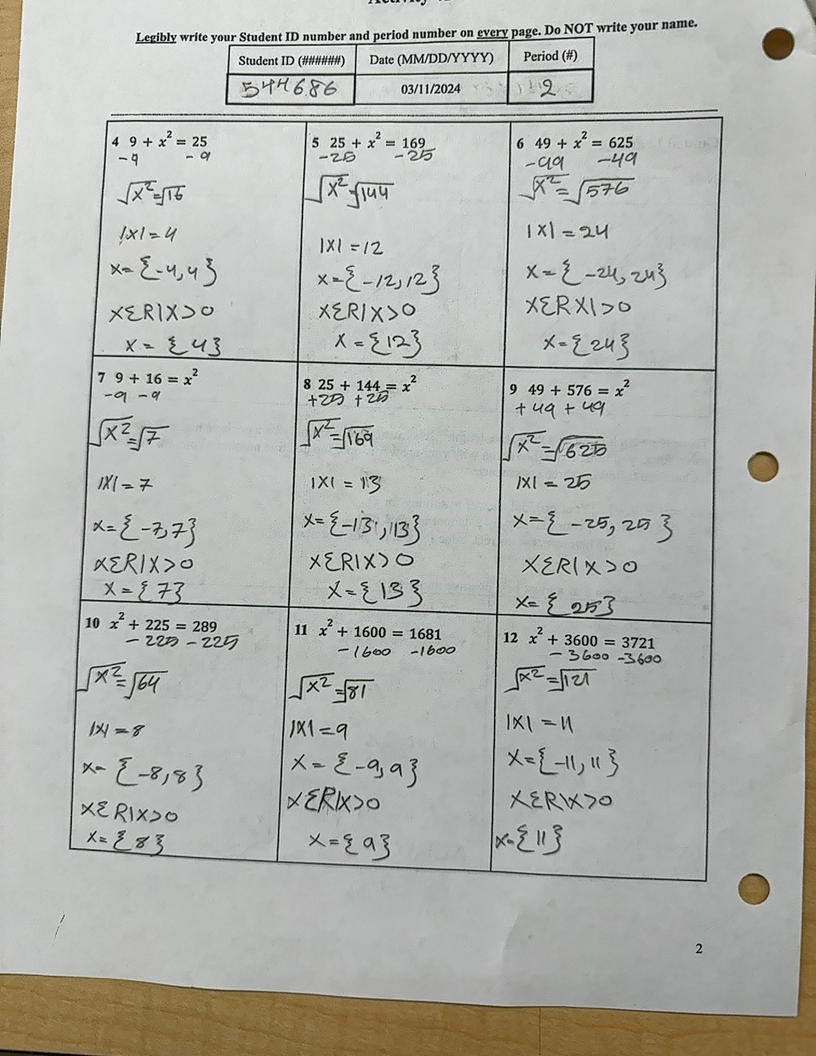 Legibly write your Student ID number and period number on every page. Do NOT write your name.
Student ID (######) Date (MM/DD/YYYY) Period (#)
544686 03/11/2024 2
4 9 + x² = 25
-9 -9
√x² = √16
|x| = 4
x = {-4, 4}
xεR|x>0
x = {4}
5 25 + x² = 169
-25 -25
√x² = √144
|x| = 12
x = {-12, 12}
xεR|x>0
x = {12}
6 49 + x² = 625
-49 -49
√x² = √576
|x| = 24
x = {-24, 24}
xεRx|>0
x = {24}
7 9 + 16 = x²
-9 -9
√x² = √7
|x| = 7
x = {-7, 7}
xεR|x>0
x = {7}
8 25 + 144 = x²
+25 +25
√x² = √169
|x| = 13
x = {-13, 13}
xεR|x>0
x = {13}
9 49 + 576 = x²
+49 +49
√x² = √625
|x| = 25
x = {-25, 25}
xεR|x>0
x = {25}
10 x² + 225 = 289
-225 -225
√x² = √64
|x| = 8
x = {-8, 8}
xεR|x>0
x = {8}
11 x² + 1600 = 1681
-1600 -1600
√x² = √81
|x| = 9
x = {-9, 9}
xεR|x>0
x = {9}
12 x² + 3600 = 3721
-3600 -3600
√x² = √121
|x| = 11
x = {-11, 11}
xεR|x>0
x = {11}
2